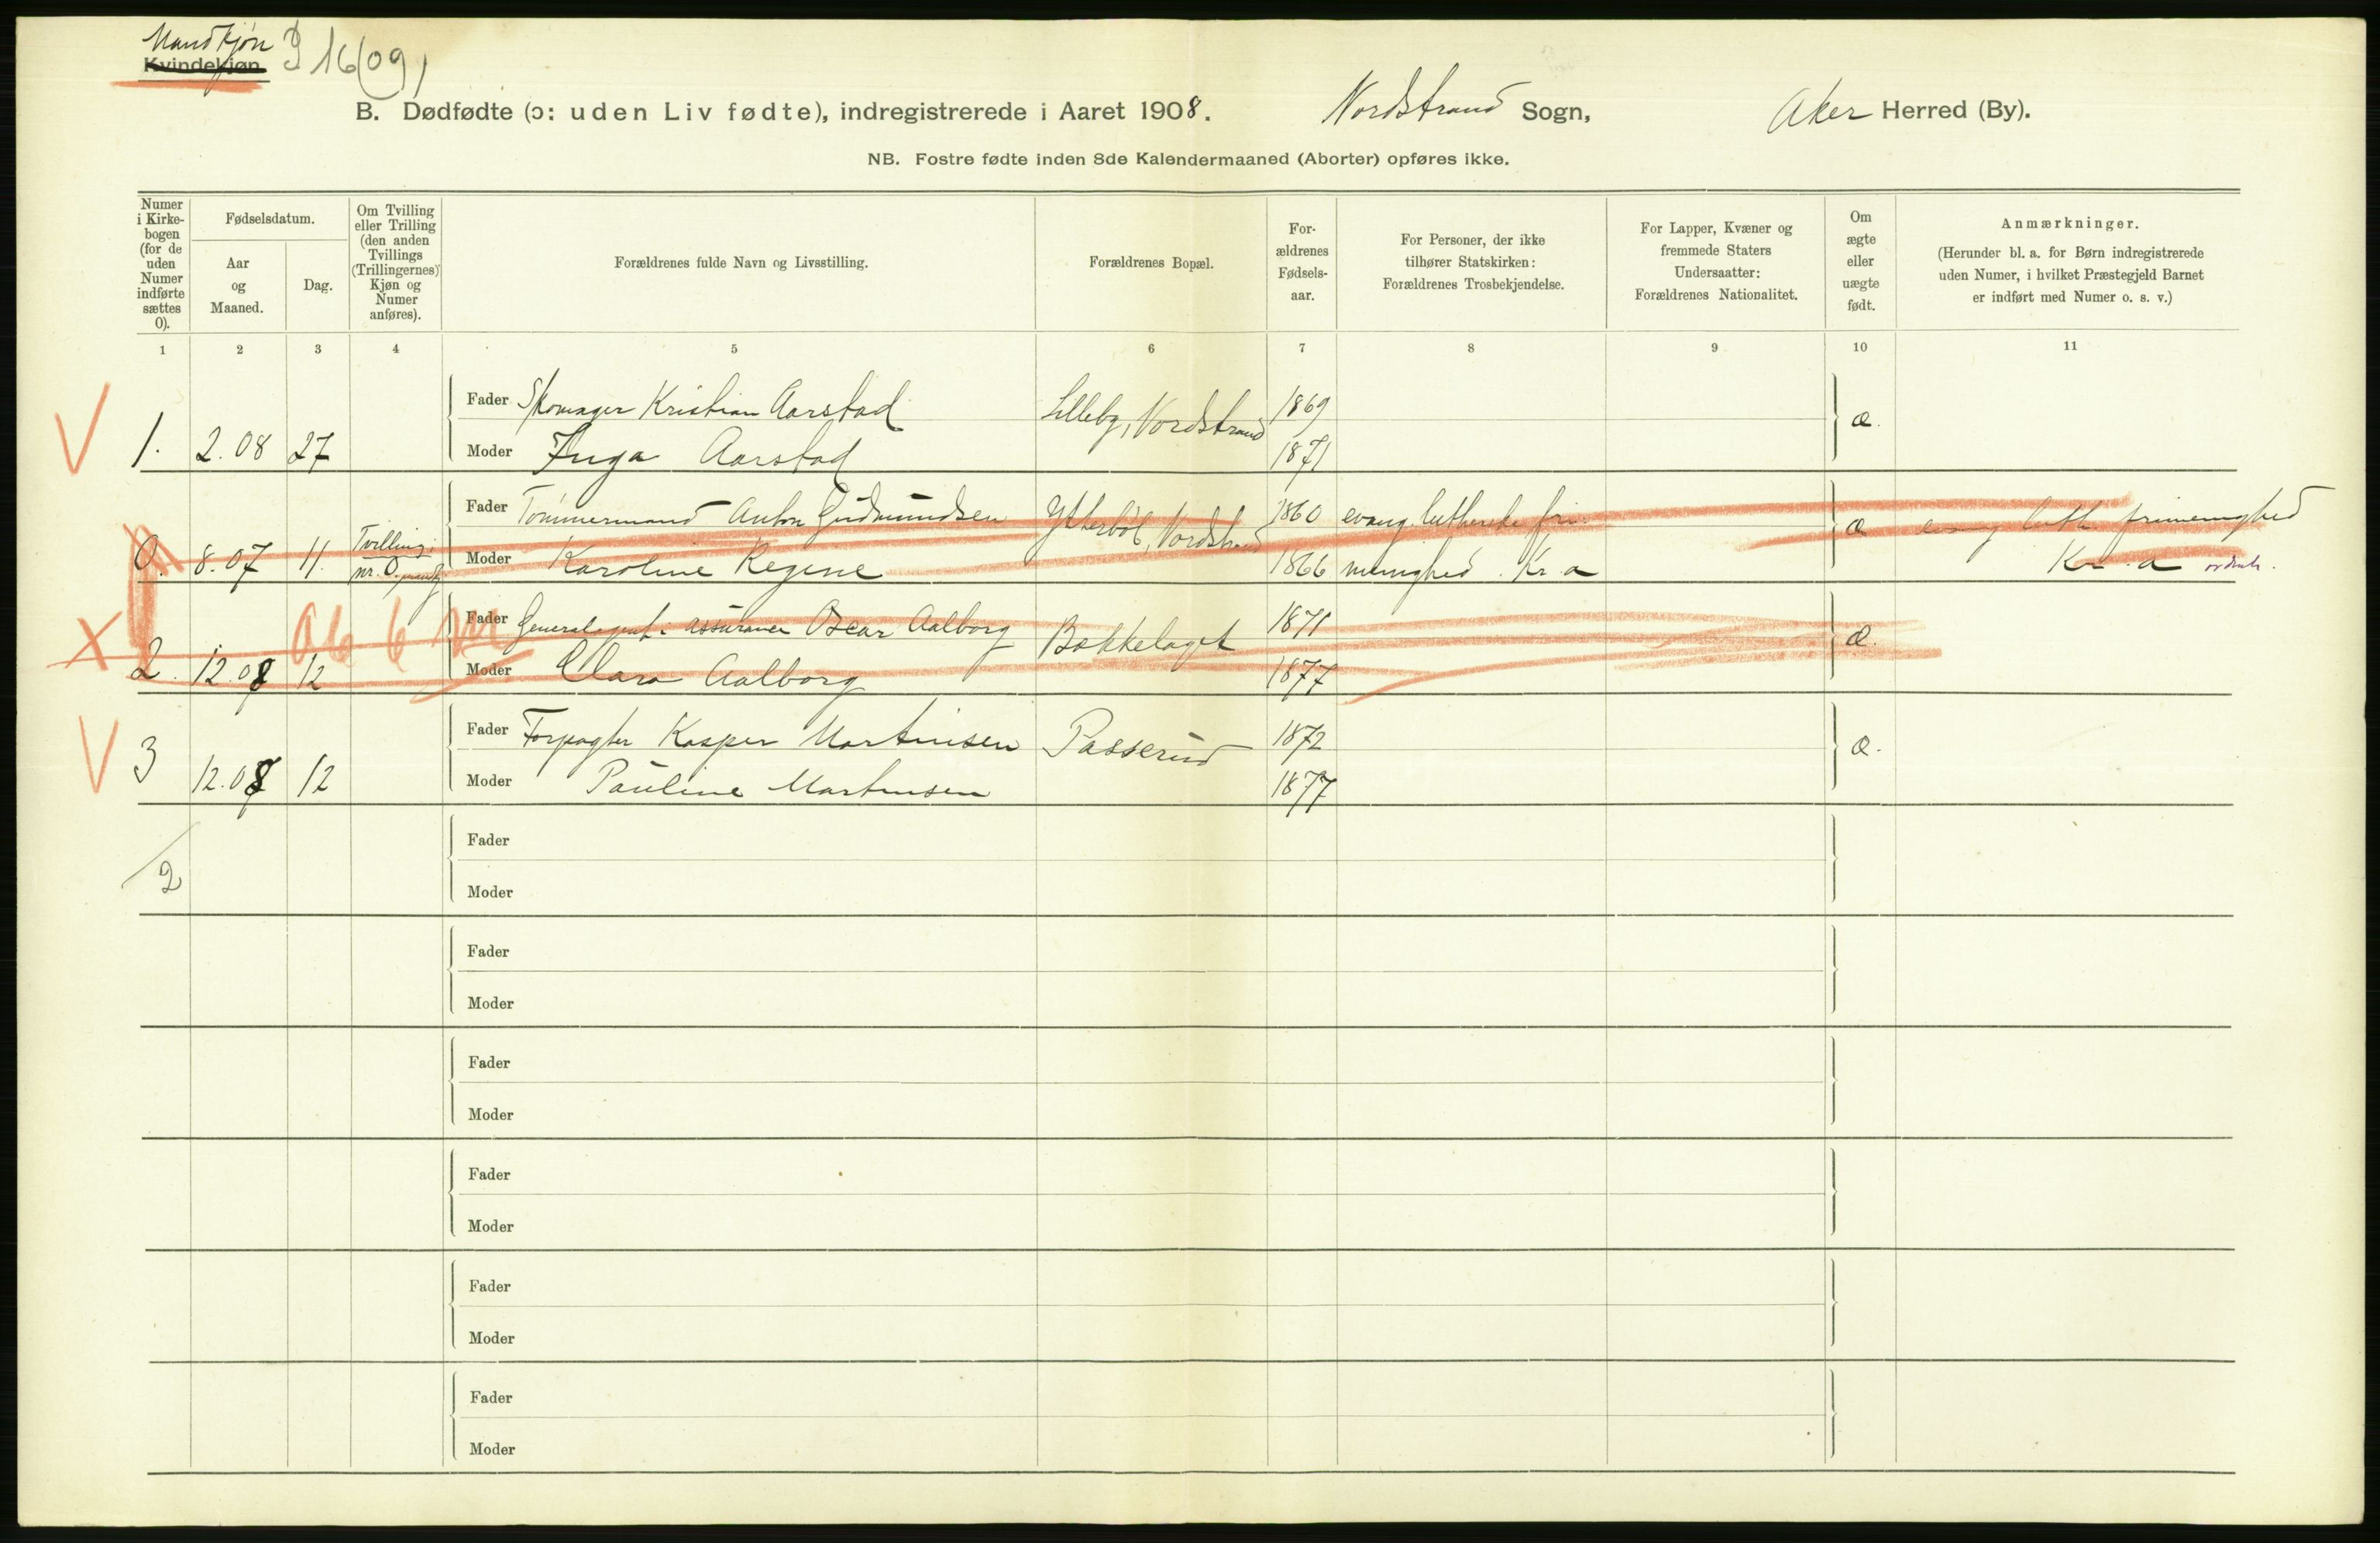 Mandkjøn
Kvindekjøn
J 16/09
B. Dødfødte (ɔ: uden Liv fødte), indregistrerede i Aaret 1908. Nordstrand Sogn, Aker Herred (By).
NB. Fostre fødte inden 8de Kalendermaaned (Aborter) opføres ikke.
Numer i Kirke-bogen (for de uden Numer indførte sættes 0).
Fødselsdatum.
Aar og Maaned.
Dag.
Om Tvilling eller Trilling (den anden Tvillings (Trillingernes) Kjøn og Numer anføres).
Forældrenes fulde Navn og Livsstilling.
Forældrenes Bopæl.
For-ældrenes Fødsels-aar.
For Personer, der ikke tilhører Statskirken: Forældrenes Trosbekjendelse.
For Lapper, Kvæner og fremmede Staters Undersaatter: Forældrenes Nationalitet.
Om ægte eller uægte født.
Anmærkninger.
(Herunder bl. a. for Børn indregistrerede uden Numer, i hvilket Præstegjeld Barnet er indført med Numer o. s. v.)
1 2 3 4 5 6 7 8 9 10 11
Fader Skomager Kristian Aarstad Lilleby, Nordstrand 1869 æ.
1. 2.08 27 Moder Inga Aarstad 1871
Fader Tømmermand Anton Gudmundsen Ytterbøl, Nordstrand 1860 evang. lutherske fri- æ evang luth frimenighed
0. 8.07 11. Tvilling: nr. 0. Moder Karoline Regine 1866 menighed. Kr.a Kr.a
Fader Generalagent i assurance Oscar Aalborg Bækkelaget 1871 æ.
2. 12.08 12 Moder Clara Aalborg 1877
Fader Forpagter Kasper Martinsen Passerud 1872 æ.
3 12.08 12 Moder Pauline Martinsen 1877
Fader
2
Moder
Fader
Moder
Fader
Moder
Fader
Moder
Fader
Moder
Fader
Moder